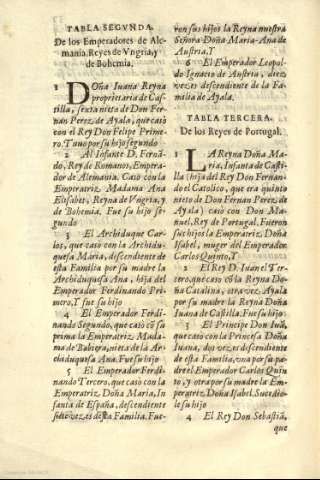 TABLA SEGVNDA.
De los Emperadores de Ale-
mania. Reyes de Vngria, y
de Bohemia.
1 DOña Iuana Reyna
proprietaria de Cas-
tilla, sexta nieta de Don Fer-
nan Perez de Ayala, que casò
con el Rey Don Felipe Prime-
ro. Tuuo por su hijo segundo
2 Al Infante D. Fernã-
do, Rey de Romanos, Empera-
dor de Alemania. Casò con la
Emperatriz Madama Ana
Elisabet, Reyna de Vngria, y
de Bohemia. Fue su hijo se-
gundo
3 El Archiduque Car-
los, que casò con la Archidu-
quesa Maria, descendiente de
esta Familia por su madre la
Archiduquesa Ana, hija del
Emperador Ferdinando Pri-
mero, Y fue su hijo
4 El Emperador Ferdi-
nando Segundo, que casò cõ su
prima la Emperatriz Mada-
ma de Babiera, nieta de la Ar-
chiduquesa Ana. Fue su hijo
5 El Emperador Ferdi-
nando Tercero, que casò con la
Emperatriz Doña Maria, In
fanta de España, descendiente
siete vezes desta Familia. Fue-
ron sus hijos la Reyna nuestra
Señora Doña Maria-Ana de
Austria, Y
6 El Emperador Leopol-
do Ignacio de Austria, diez
vezes descendiente de la Fa-
milia de Ayala.
TABLA TERCERA.
De los Reyes de Portugal.
1 LA Reyna Doña Ma-
ria, Infanta de Casti-
lla (hija del Rey Don Fernan-
do el Catolico, que era quinto
nieto de Don Fernan Perez de
Ayala) casò con Don Ma-
nuel, Rey de Portugal. Fueron
sus hijos la Emperatriz Doña
Isabel, muger del Emperador
Carlos Quinto, Y
2 El Rey D. Iuan el Ter-
cero, que casò cõ la Reyna Do-
ña Catalina, otra vez Ayala
por su madre la Reyna Doña
Iuana de Castilla. Fue su hijo:
3 El Principe Don Iuã,
que casò con la Princesa Doña
Iuana, dos vezes descendiente
de esta Familia, vna por su pa-
dre el Emperador Carlos Quin
to, y otra por su madre la Em-
peratriz Doña Isabel. Sucedio-
le su hijo
4 El Rey Don Sebastiã,
que